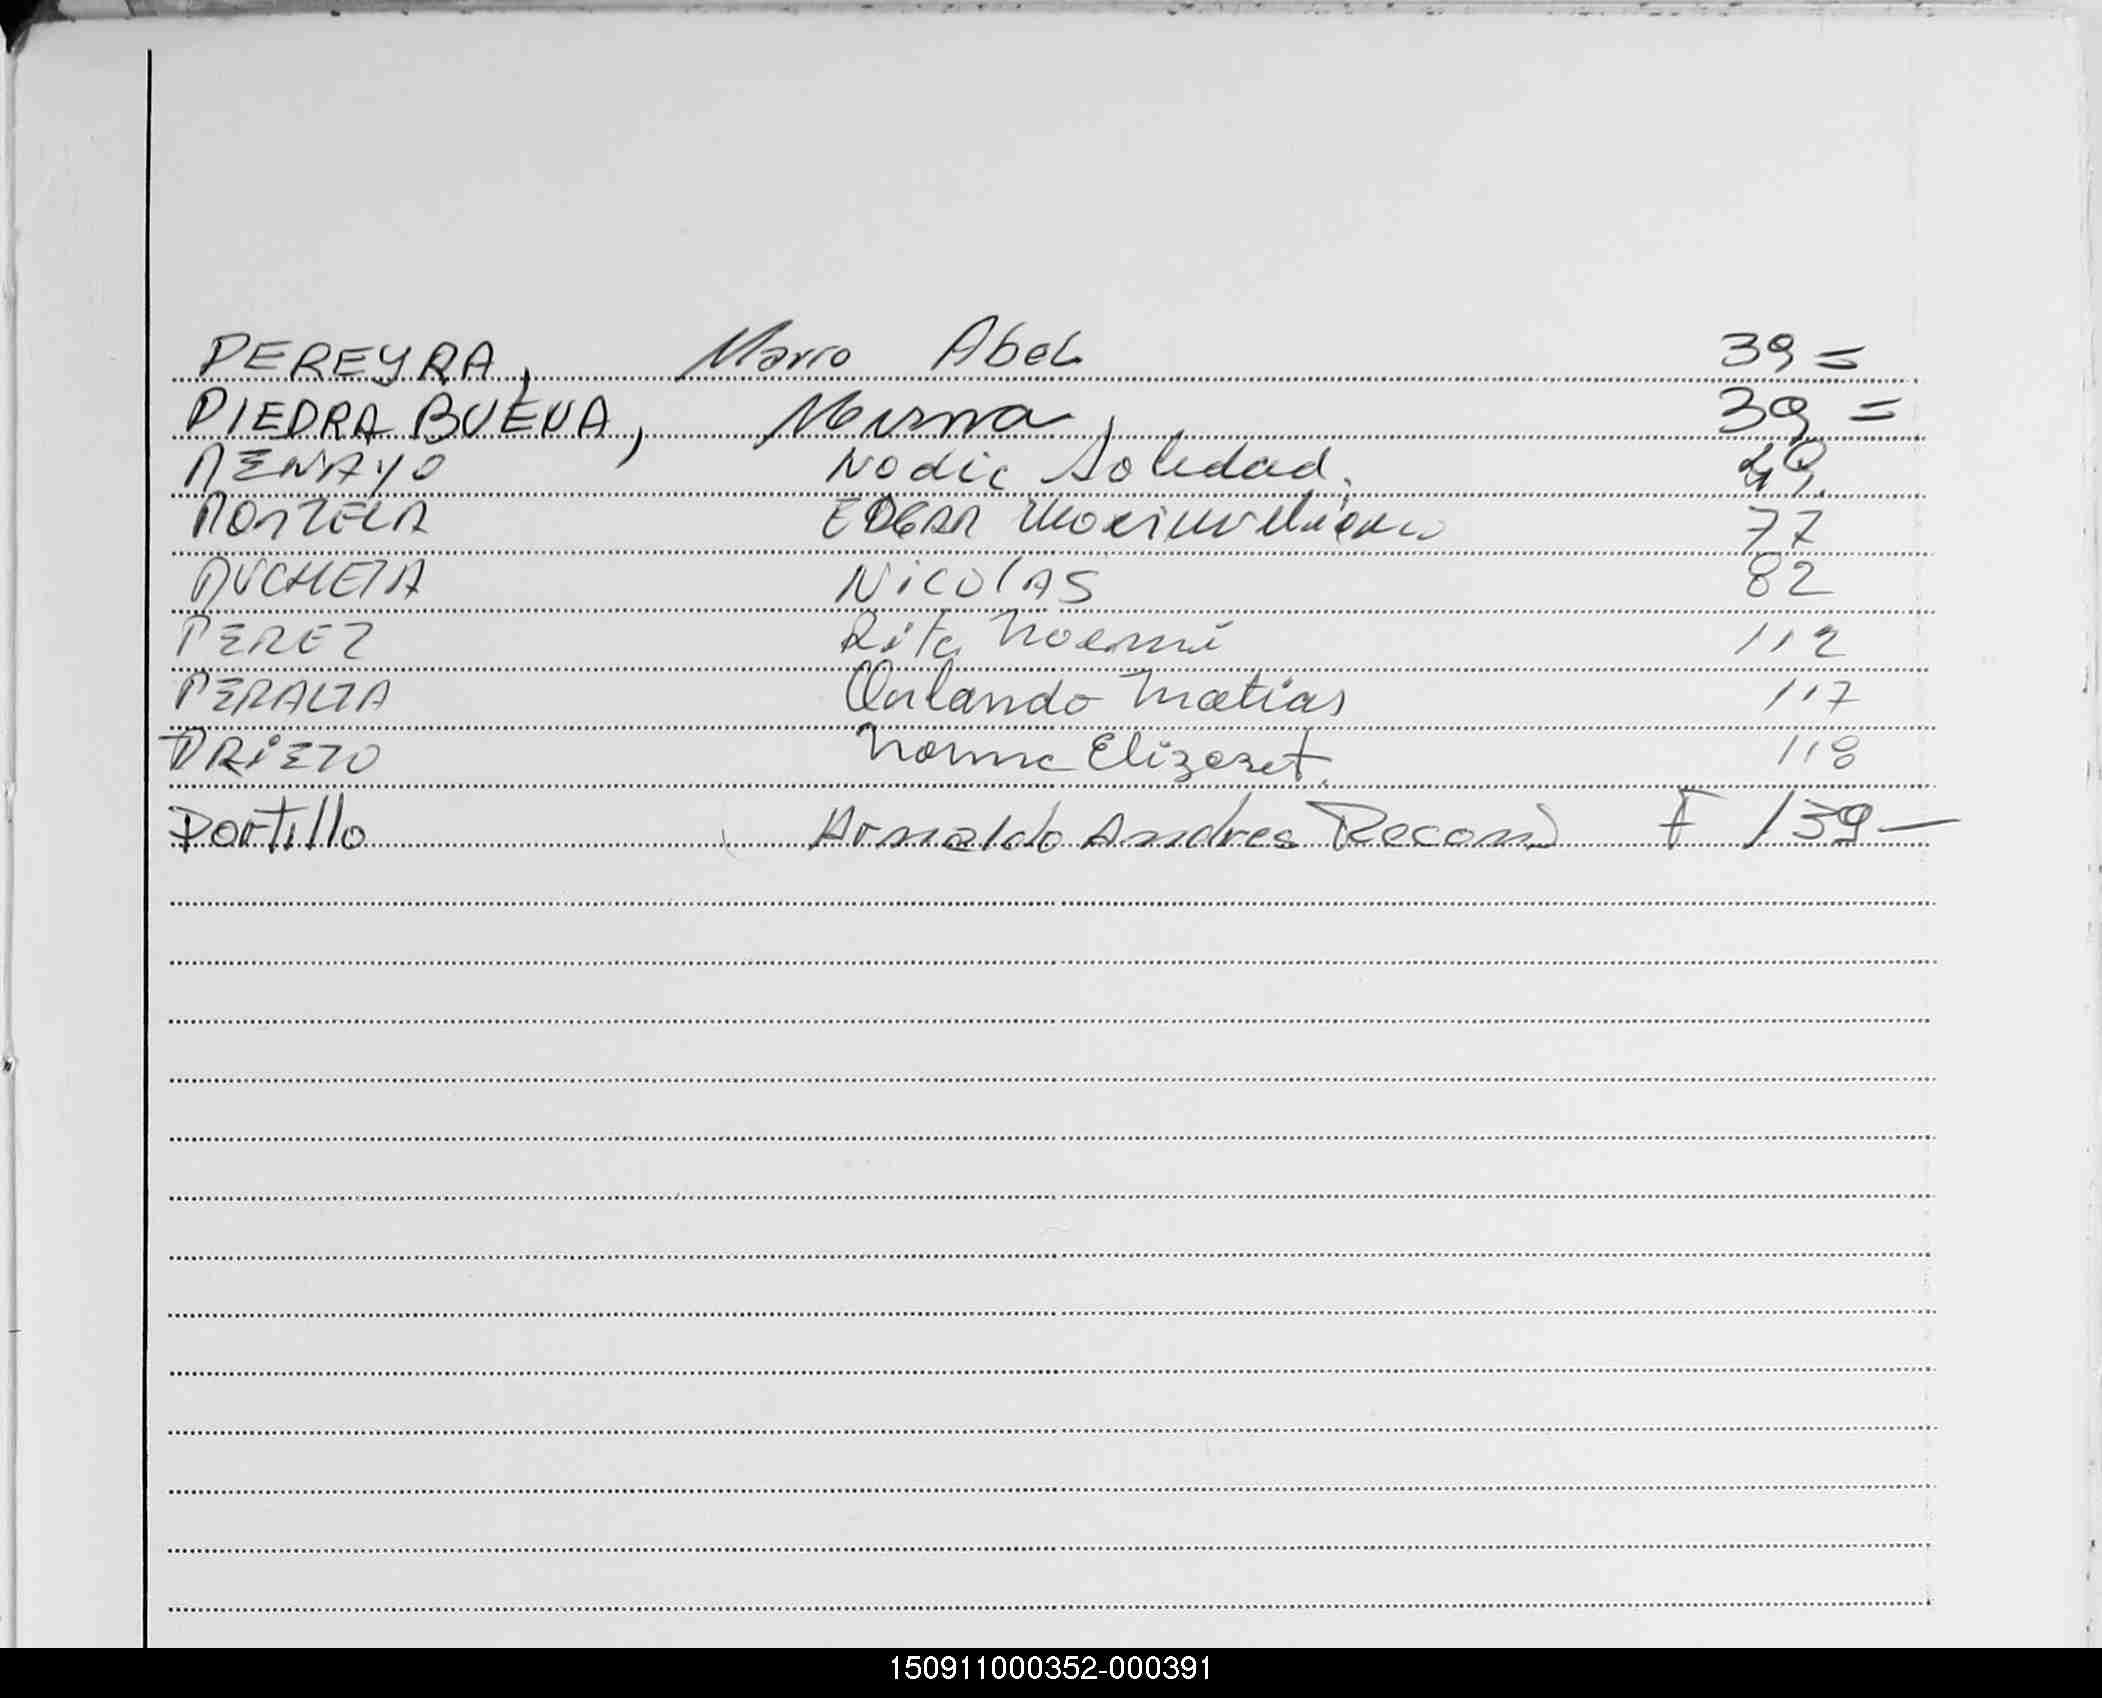 PEREYRA, Mario Abel 39=
PIEDRA BUENA, Mirna 39=
Soledad. 49
EDGAR Maximiliano 77
NICOLAS 82
PEREZ Rita Noemi 112
PERALTA Orlando Matias 117
PRIETO Norma Elizabet. 118
Portillo Arnaldo Andres Recon F 139-
150911000352-000391